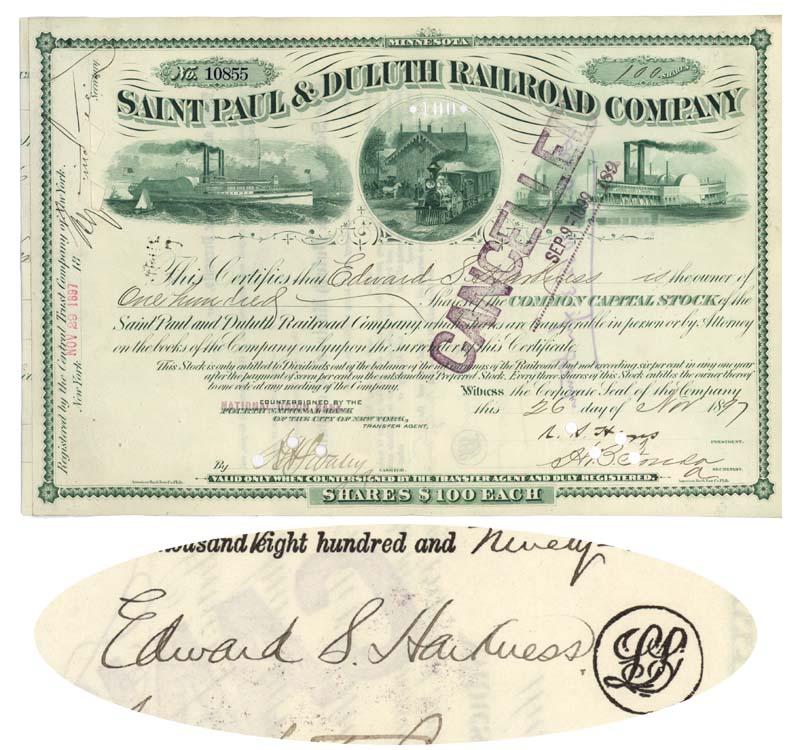 MINNESOTA
No. 10855
100 SHARES
SAINT PAUL & DULUTH RAILROAD COMPANY
100
CANCELLED
SEP 9 - 1899
189
Registered by the Central Trust Company of New York.
New York NOV 29 1897 18
Secretary
This Certifies that Edward S. Harkness is the owner of
One hundred Shares of the COMMON CAPITAL STOCK of the
Saint Paul and Duluth Railroad Company, which shares are transferable in person or by Attorney
on the books of the Company only upon the surrender of this Certificate.
This Stock is only entitled to Dividends out of the balance of the net earnings of the Railroad, but not exceeding six per cent in any one year
after the payment of seven per cent on the outstanding Preferred Stock. Every three shares of this Stock entitles the owner thereof
to one vote at any meeting of the Company.
Witness the Corporate Seal of the Company
this 26 day of Nov 1897
COUNTERSIGNED BY THE
FOURTH NATIONAL BANK
OF THE CITY OF NEW YORK,
TRANSFER AGENT,
By
CASHIER.
PRESIDENT.
SECRETARY.
American Bank Note Co. Phila.
VALID ONLY WHEN COUNTERSIGNED BY THE TRANSFER AGENT AND DULY REGISTERED.
American Bank Note Co. Phila.
SHARES $100 EACH
thousand eight hundred and Ninety-
Edward S. Harkness
LS